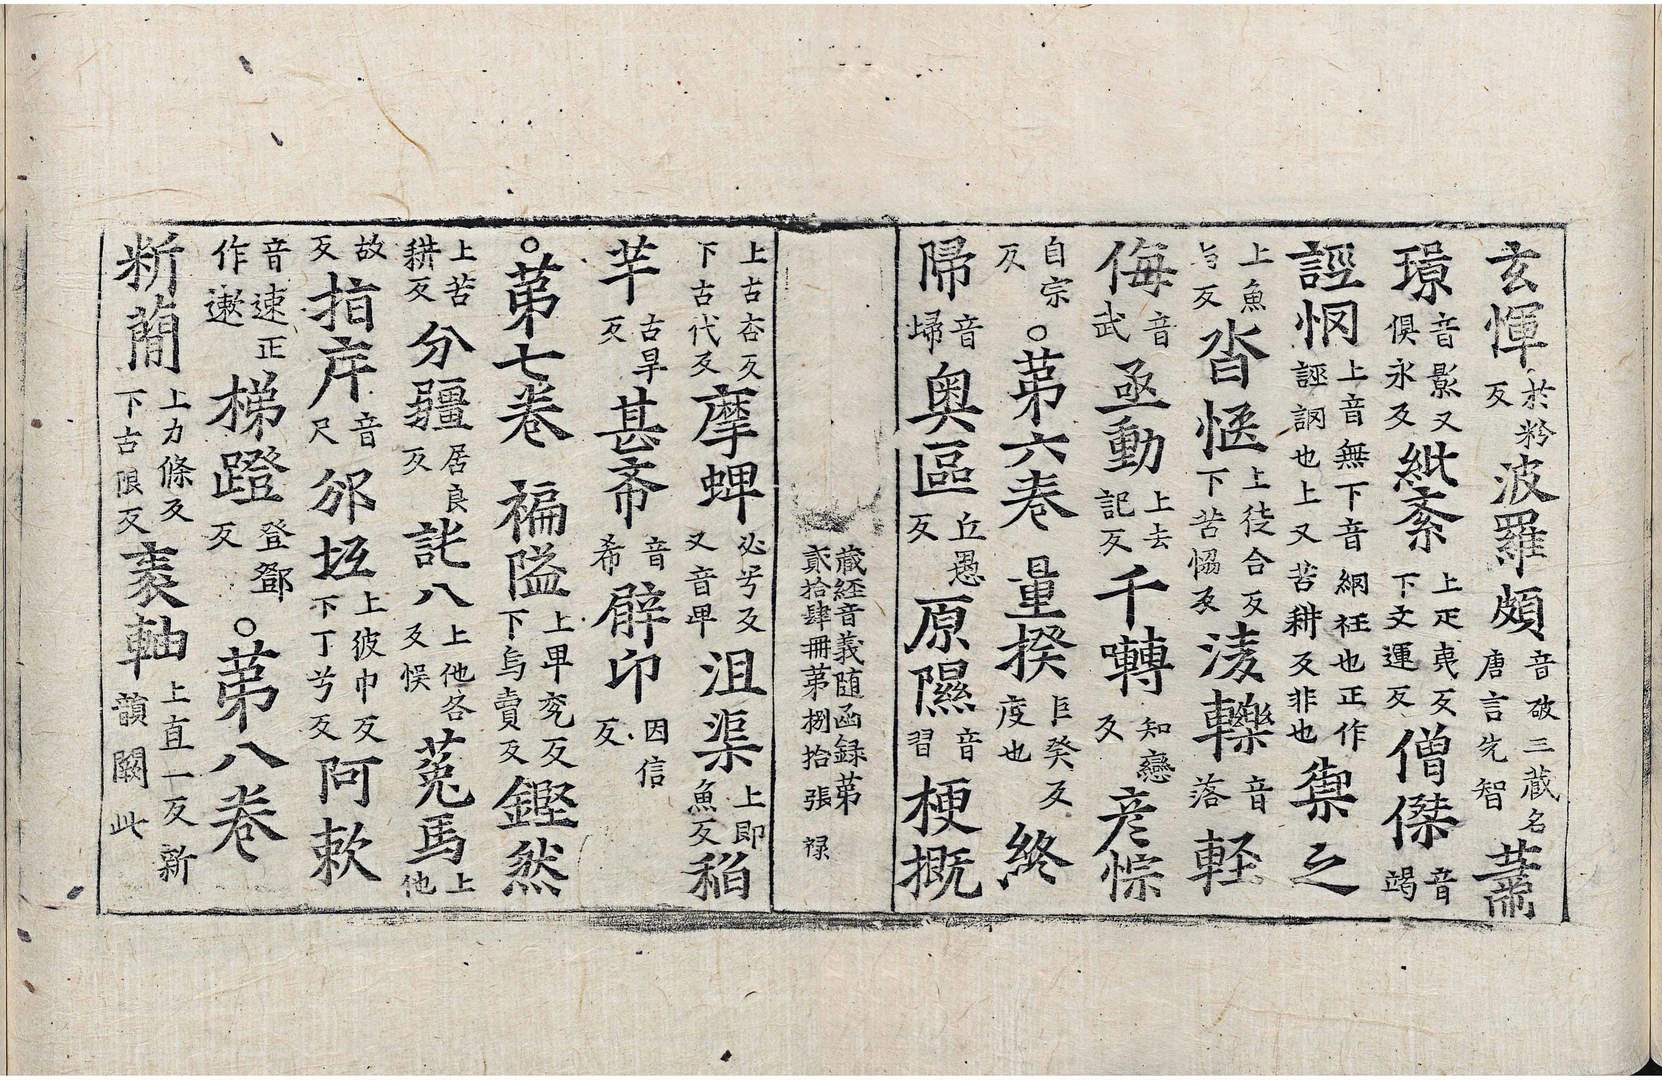 玄惲於粉反波羅頗音破三藏名唐言先智䔥
璟音影又俱永反紕紊上疋夷反下文運反僧傑音竭
誙𢗅上音無下音網枉也正作誣誷也上又苦耕反非也禦之
上魚与反沓愜上徒合反下苦恊反淩轢音落軽
侮音武亟動上去記反千囀知戀反彦悰
自宗反○苐六卷量揆巨癸反度也終
㷌音埽奥區丘愚反原隰音習梗概
藏経音義随函録苐
貳拾肆冊苐捌拾張 禄
上古杏反下古代反摩蜱必兮反又音卑沮渠上即魚反稻
芉古旱反甚斋音希辟印因信反
○苐七卷褊隘上卑兖反下烏賣反鏗然
上苦耕反分疆居良反訛八上他各反悮菟馬上他
故反指㡿音尺邠坻上彼巾反下丁兮反阿欶
音速正作遬梯蹬登鄧反○苐八卷
斯蕳上力條反下古限反袠軸上直一反新韻闕此